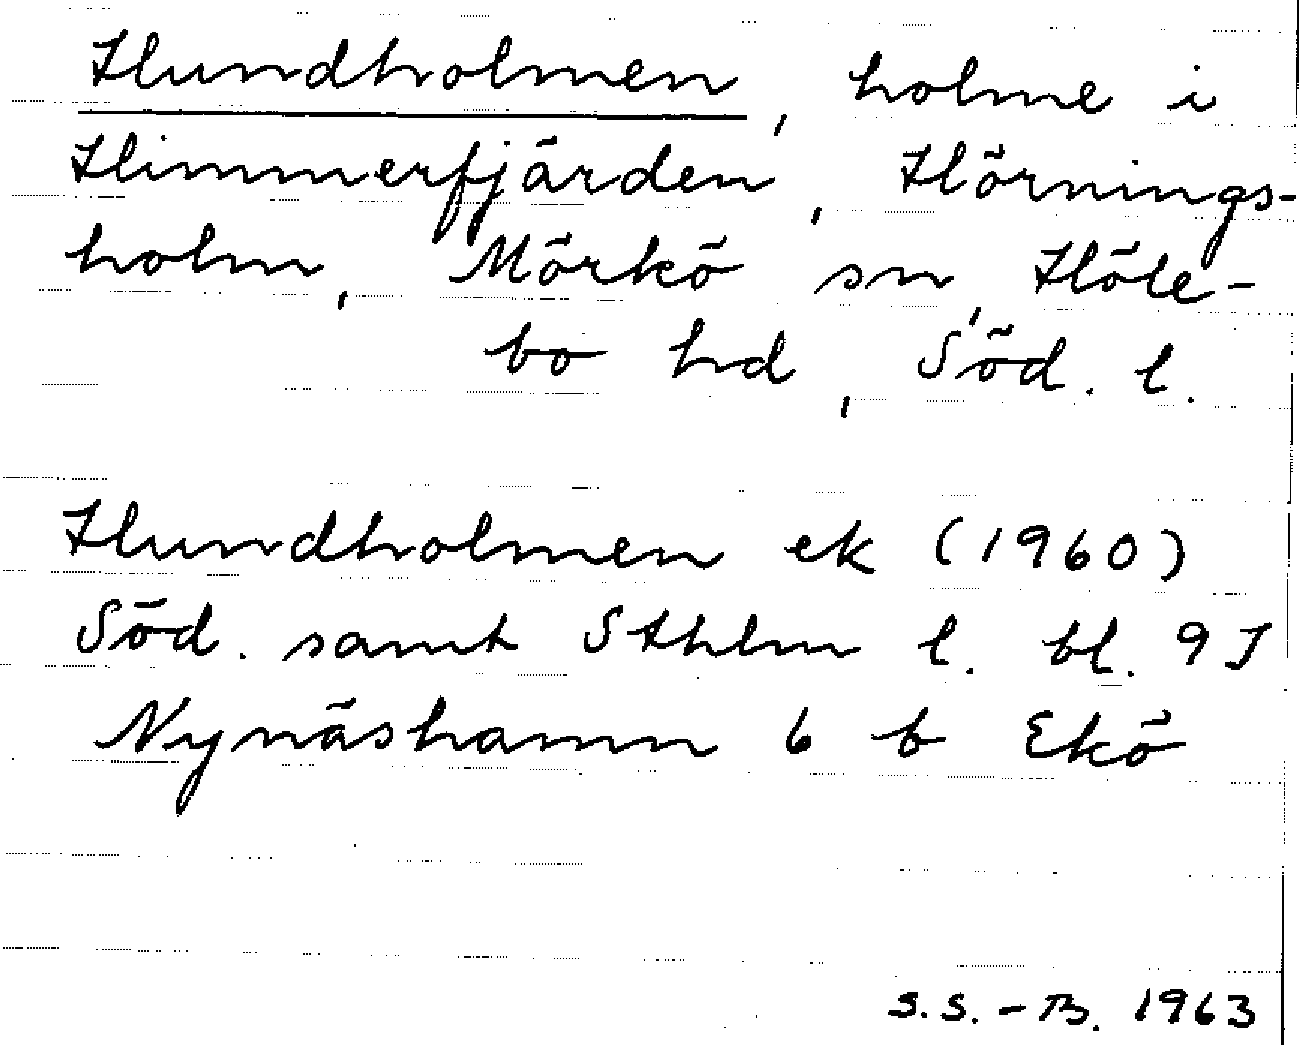 Hundholmen, holme i
Himmerfjärden, Hörnings-
holm, Mörkö sn, Höle-
bo hd, Söd. l.
Hundholmen ek (1960)
Söd. samt Sthlm l. bl. 9 I
Nynäshamn 6 b Ekö
S.S.-B. 1963